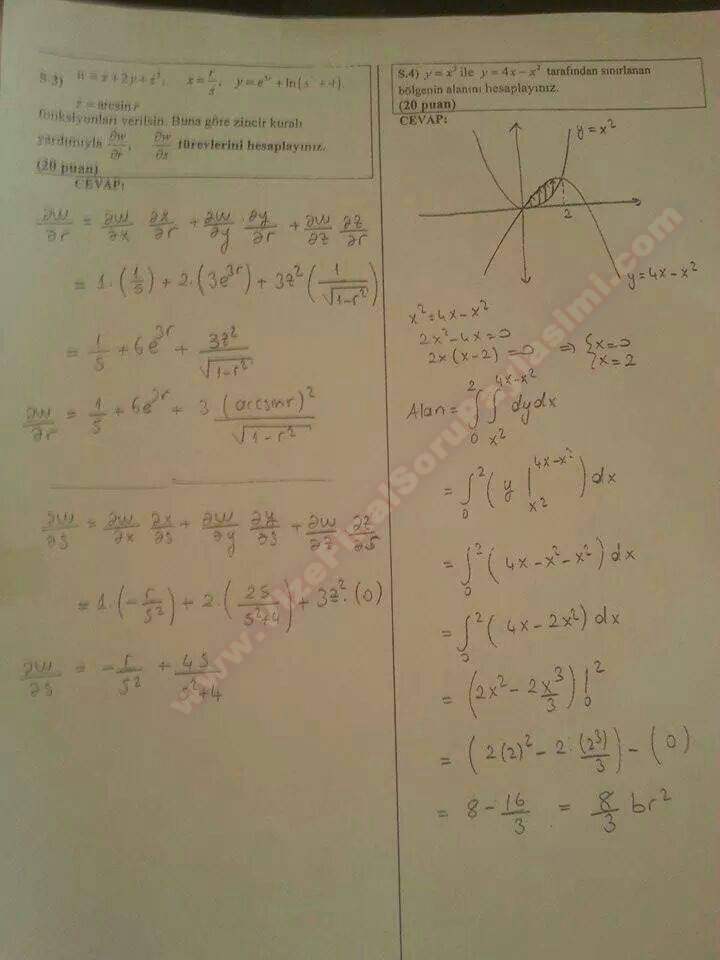 S.3) w = x+2y+z³, x = r/s, y = e³ʳ + ln(s² + 4),
z = arcsin r
fonksiyonları verilsin. Buna göre zincir kuralı
yardımıyla ∂w/∂r, ∂w/∂s türevlerini hesaplayınız.
(20 puan)
CEVAP:
∂w/∂r = ∂w/∂x ∂x/∂r + ∂w/∂y · ∂y/∂r + ∂w/∂z ∂z/∂r
= 1·(1/s) + 2·(3e³ʳ) + 3z² (1/√(1-r²))
= 1/s + 6e³ʳ + 3z²/√(1-r²)
∂w/∂r = 1/s + 6e³ʳ + 3 (arcsinr)²/√(1-r²)
∂w/∂s = ∂w/∂x ∂x/∂s + ∂w/∂y ∂y/∂s + ∂w/∂z ∂z/∂s
= 1·(-r/s²) + 2·(2s/(s²+4)) + 3z²·(0)
∂w/∂s = -r/s² + 4s/(s²+4)
S.4) y = x² ile y = 4x − x² tarafından sınırlanan
bölgenin alanını hesaplayınız.
(20 puan)
CEVAP:
y=x²
2
y=4x-x²
x²=4x-x²
2x²-4x=0
2x(x-2)=0 ⇒ {x=0
{x=2
Alan = ∫₀² ∫_{x²}^{4x-x²} dydx
= ∫₀² (y |_{x²}^{4x-x²}) dx
= ∫₀² (4x-x²-x²) dx
= ∫₀² (4x-2x²) dx
= (2x² - 2x³/3) |₀²
= (2(2)² - 2·(2³)/3) - (0)
= 8 - 16/3 = 8/3 br²
www.VizeFinalSoruPaylasimi.com